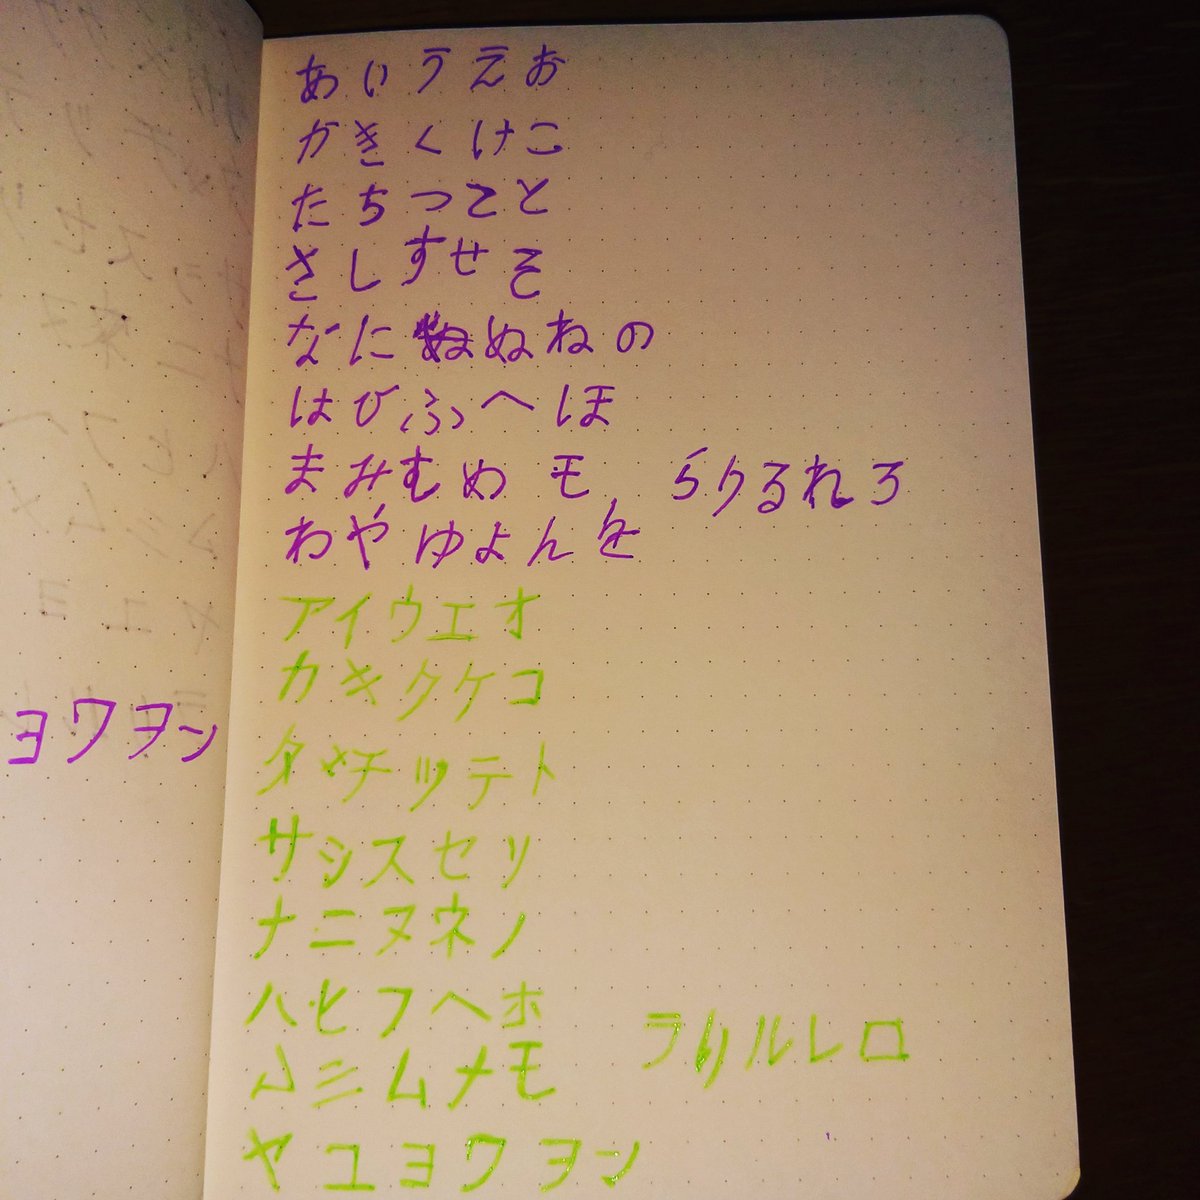 あいうえお
かきくけこ
たちつてと
さしすせそ
なにぬねの
はひふへほ
まみむめモ らりるれろ
わやゆよんを
アイウエオ
カキクケコ
タチツテト
サシスセソ
ナニヌネノ
ハヒフヘホ
ラリルレロ
マミムメモ
ヤユヨワヲン
ヨワヲン